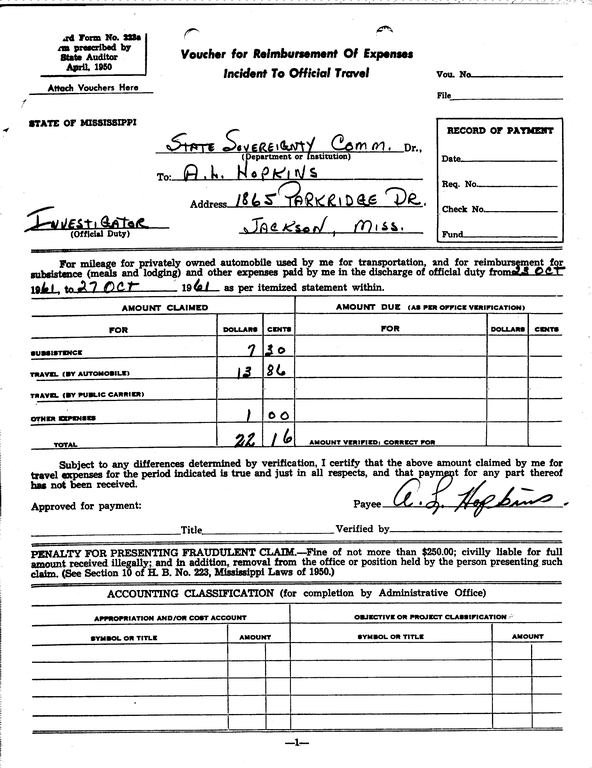 rd Form No. 223a
rm prescribed by
State Auditor
April, 1950
Attach Vouchers Here
Voucher for Reimbursement Of Expenses
Incident To Official Travel
Vou. No.
File
STATE OF MISSISSIPPI
STATE SOVEREIGNTY COMM. Dr.,
(Department or Institution)
To: A.L. HOPKINS
Address 1865 PARKRIDGE DR.
INVESTIGATOR JACKSON, MISS.
(Official Duty)
RECORD OF PAYMENT
Date
Req. No.
Check No.
Fund
For mileage for privately owned automobile used by me for transportation, and for reimbursement for
subsistence (meals and lodging) and other expenses paid by me in the discharge of official duty from OCT
1961, to 27 OCT 1961 as per itemized statement within.
AMOUNT CLAIMED AMOUNT DUE (AS PER OFFICE VERIFICATION)
FOR DOLLARS CENTS FOR DOLLARS CENTS
SUBSISTENCE 7 30
TRAVEL (BY AUTOMOBILE) 13 86
TRAVEL (BY PUBLIC CARRIER)
OTHER EXPENSES 1 00
TOTAL 22 16 AMOUNT VERIFIED: CORRECT FOR
Subject to any differences determined by verification, I certify that the above amount claimed by me for
travel expenses for the period indicated is true and just in all respects, and that payment for any part thereof
has not been received.
Approved for payment: Payee A. L. Hopkins.
Title Verified by
PENALTY FOR PRESENTING FRAUDULENT CLAIM.—Fine of not more than $250.00; civilly liable for full
amount received illegally; and in addition, removal from the office or position held by the person presenting such
claim. (See Section 10 of H. B. No. 223, Mississippi Laws of 1950.)
ACCOUNTING CLASSIFICATION (for completion by Administrative Office)
APPROPRIATION AND/OR COST ACCOUNT OBJECTIVE OR PROJECT CLASSIFICATION
SYMBOL OR TITLE AMOUNT SYMBOL OR TITLE AMOUNT
—1—